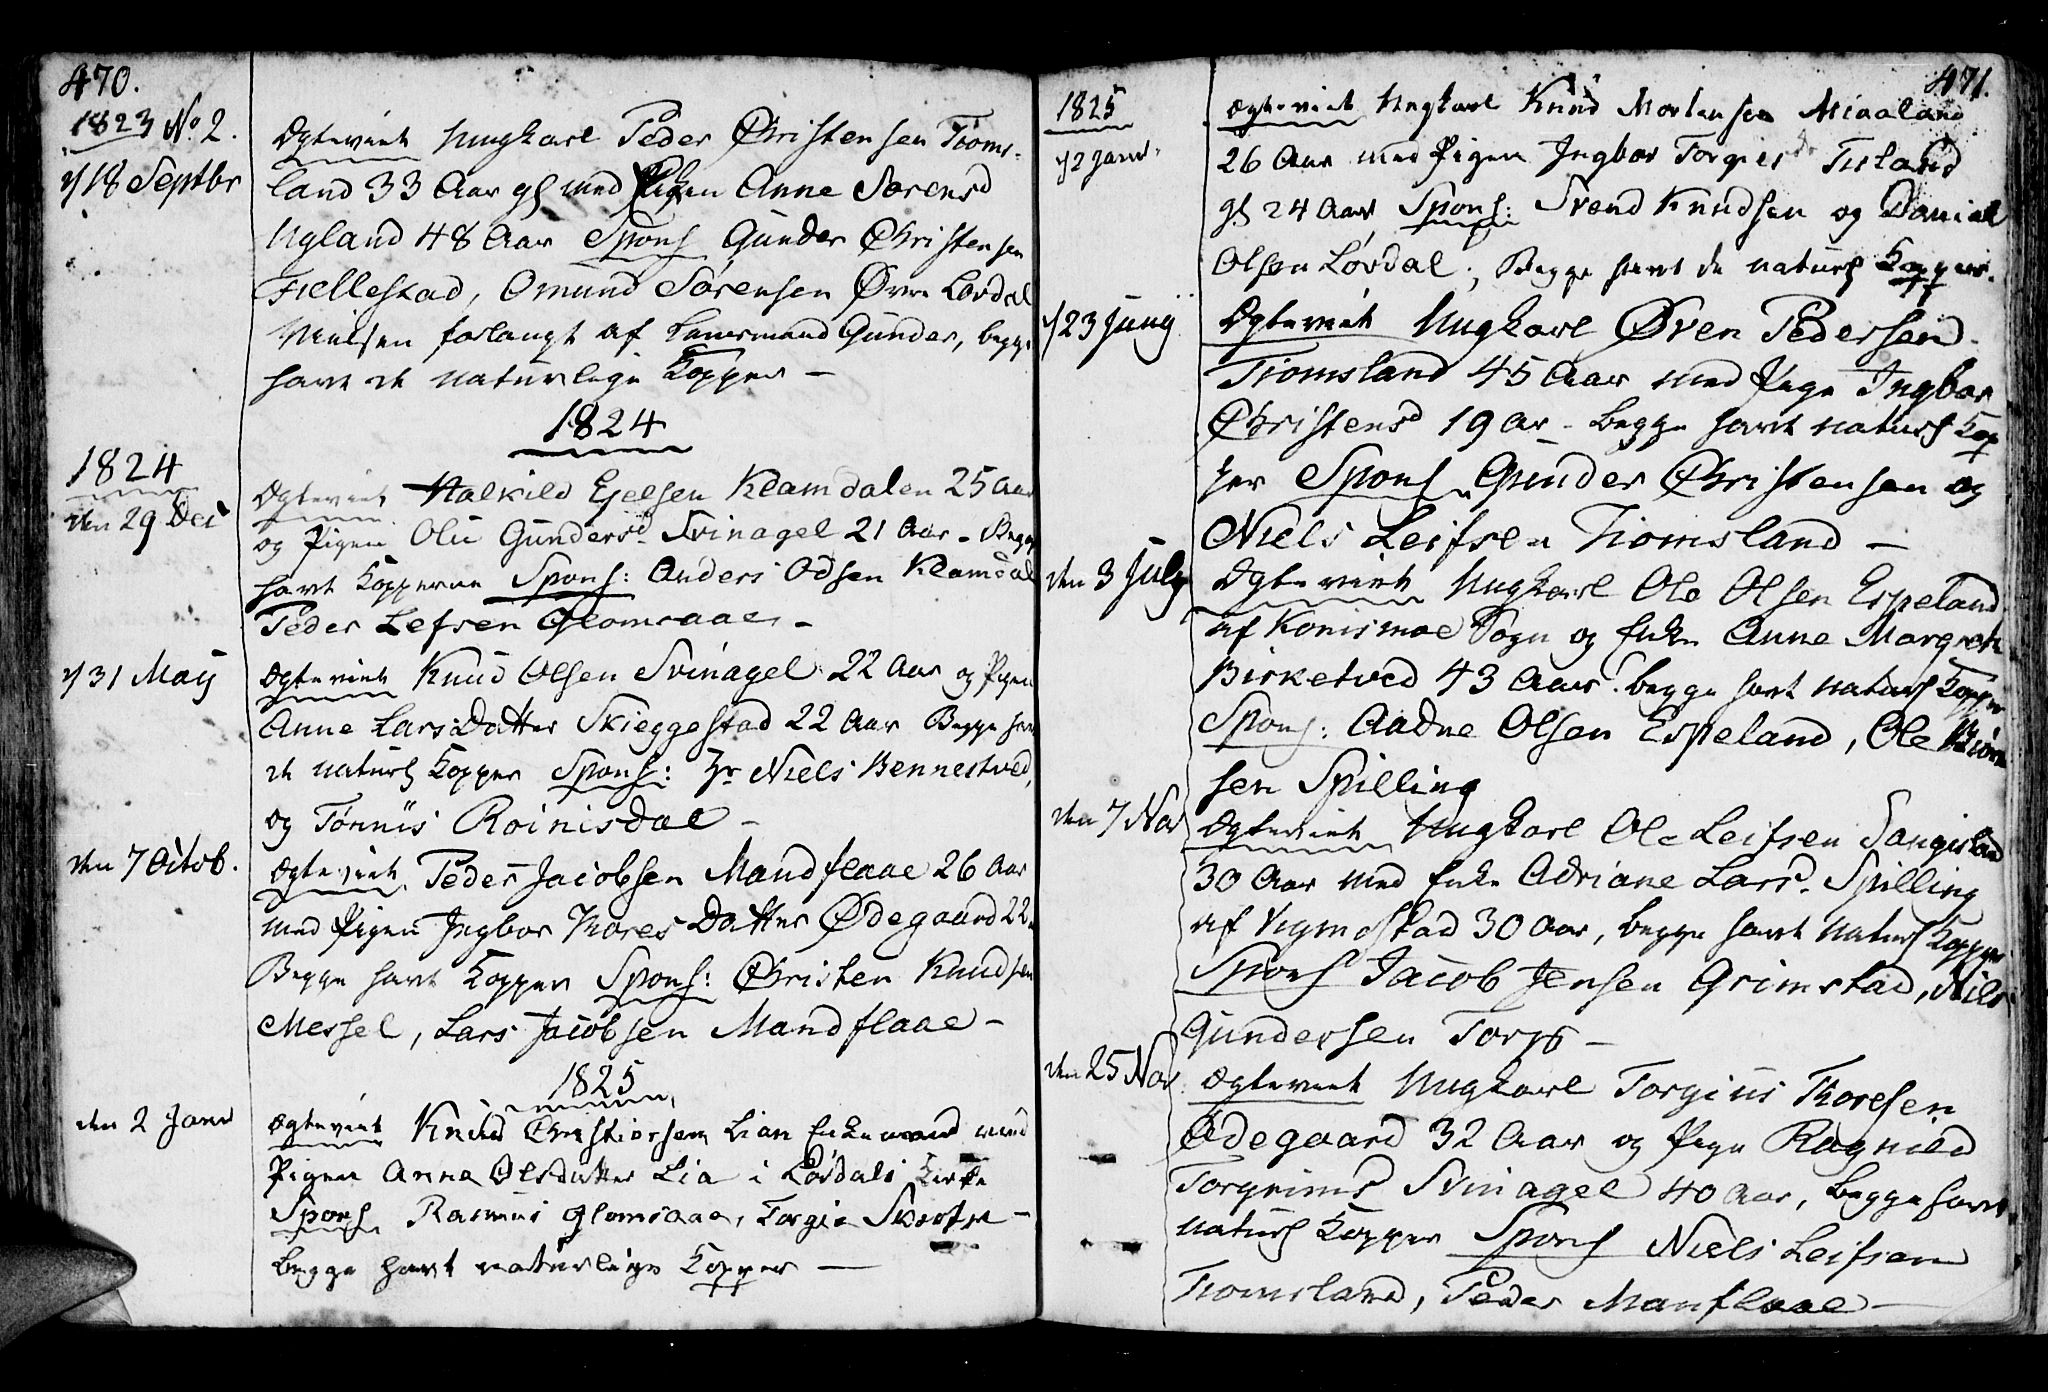 470.
1823 No 2.
d/18 Septbr
Ægteviet Ungkarl Peder Christensen Tioms-
land 33 Aar gl med Pigen Anne Sørensd
Ugland 48 Aar Spons Gunder Christensen
Fiellestad, Omund Sørensen Øvre Løvdal
Vielsen forlangt af Lensmand Gunder, begge
havt de naturlige Kopper —
1824
1824
den 29 Dec
Ægteviet Halkild Eielsen Klamdalen 25 Aar
og Pigen Olu Gundersd Svinagel 21 Aar - Begge
havt Kopperne Spons: Anders Odsen Klamdal
Peder Lefsen Glomsaae, -
d/31 Maij
Ægteviet Knud Olsen Svinagel 22 Aar og Pigen
Anne Lars Datter Skieggestad 22 Aar Begge havt
de naturl Kopper Spons: Hr Niels Bennestved,
og Tønnis Roinisdal —
den 7 Octob.
Ægteviet Peder Jacobsen Mandflaae 26 Aar
med Pigen Ingbor Thores Datter Ødegaard 22
Begge havt Kopper Spons: Christen Knudsen
Messel, Lars Jacobsen Mandflaae —
1825
den 2 Janr
Ægteviet Knud Christiansen Lian Enkemand med
Pigen Anne Olsdatter Lia i Løvdals Kirke
Spons Rasmus Glomsaae, Torgie —
begge havt naturlige Kopper —
471.
1825
d/2 Janr.
Ægteviet Ungkarl Knud Mortensen Miaaland
26 Aar med Pigen Ingbor Torgiesd Tisland
gl 24 Aar Spons: Svend Knudsen og Daniel
Olsen Løvdal, Begge havt de naturl Kopper.
d/23 Junij
Ægteviet Ungkarl Øven Pedersen
Tiomsland 45 Aar med Pige Ingbor
Christensd 19 Ar - begge havt naturl Kop
per Spons Gunder Christensen og
Niels Leifsen Tiomsland —
den 3 July
Ægteviet Ungkarl Ole Olsen Espeland
af Konismoe Sogn og Enke Anne Margrete
Birketved 43 Aar. begge havt naturl Kopper
Spons: Aadne Olsen Espeland, Ole Biørn
sen Spilling
den 7 Nov
Ægteviet Ungkarl Ole Leifsen Sangisland
30 Aar med Enke Adriane Larsd. Spilling
af Vigmostad 30 Aar, begge havt naturl Kopper
Spons Jacob Jensen Grimstad, Niels
Gundersen Torp —
den 25 Nov
Ægteviet Ungkarl Torgius Thoresen
Ødegaard 32 Aar og Pige Ragnild
Torgrimsd Svinagel 40 Aar, begge havt
naturl Kopper Spons Niels Leifsen
Tiomsland, Peder Manflaae —